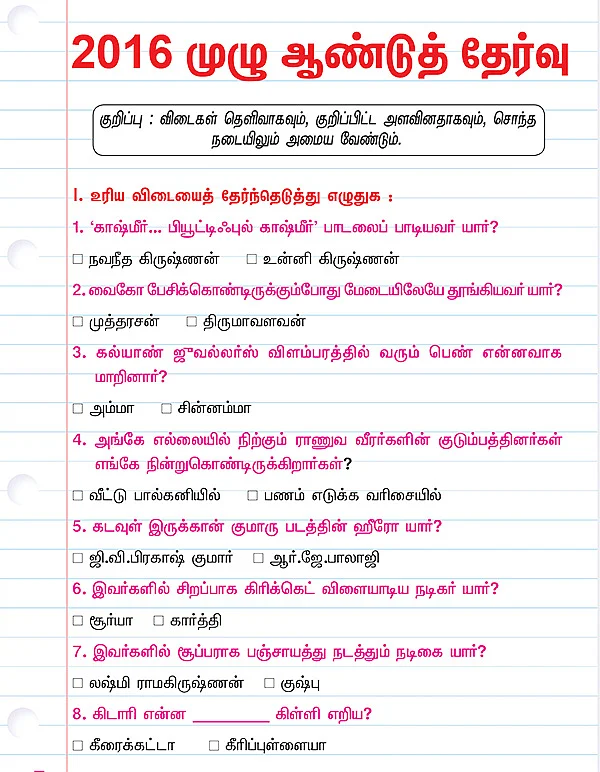 2016 முழு ஆண்டுத் தேர்வு
குறிப்பு : விடைகள் தெளிவாகவும், குறிப்பிட்ட அளவினதாகவும், சொந்த
நடையிலும் அமைய வேண்டும்.
I. உரிய விடையைத் தேர்ந்தெடுத்து எழுதுக :
1. ‘காஷ்மீர்... பியூட்டிஃபுல் காஷ்மீர்’ பாடலைப் பாடியவர் யார்?
☐ நவநீத கிருஷ்ணன் ☐ உன்னி கிருஷ்ணன்
2. வைகோ பேசிக்கொண்டிருக்கும்போது மேடையிலேயே தூங்கியவர் யார்?
☐ முத்தரசன் ☐ திருமாவளவன்
3. கல்யாண் ஜுவல்லர்ஸ் விளம்பரத்தில் வரும் பெண் என்னவாக
மாறினார்?
☐ அம்மா ☐ சின்னம்மா
4. அங்கே எல்லையில் நிற்கும் ராணுவ வீரர்களின் குடும்பத்தினர்கள்
எங்கே நின்றுகொண்டிருக்கிறார்கள்?
☐ வீட்டு பால்கனியில் ☐ பணம் எடுக்க வரிசையில்
5. கடவுள் இருக்கான் குமாரு படத்தின் ஹீரோ யார்?
☐ ஜி.வி.பிரகாஷ் குமார் ☐ ஆர்.ஜே.பாலாஜி
6. இவர்களில் சிறப்பாக கிரிக்கெட் விளையாடிய நடிகர் யார்?
☐ சூர்யா ☐ கார்த்தி
7. இவர்களில் சூப்பராக பஞ்சாயத்து நடத்தும் நடிகை யார்?
☐ லஷ்மி ராமகிருஷ்ணன் ☐ குஷ்பு
8. கிடாரி என்ன _________ கிள்ளி எறிய?
☐ கீரைக்கட்டா ☐ கீரிப்புள்ளையா